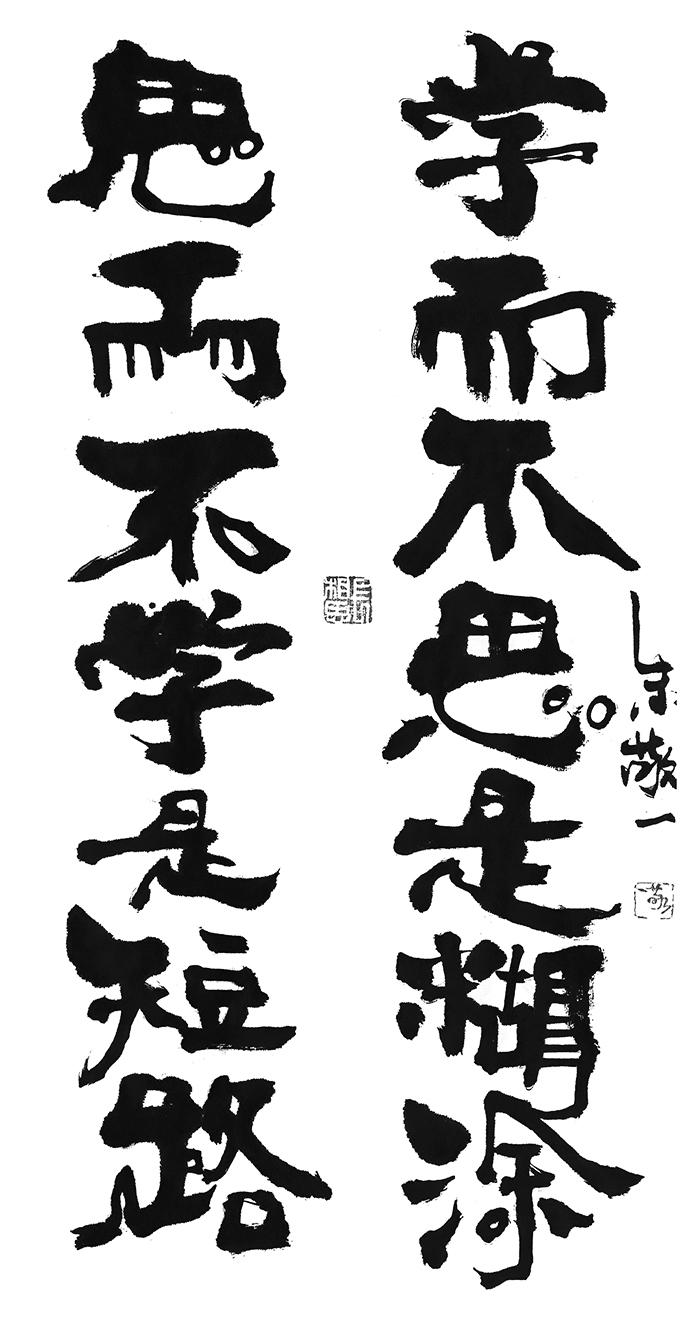 学而不思是糊涂
思而不学是短路
朱敬一